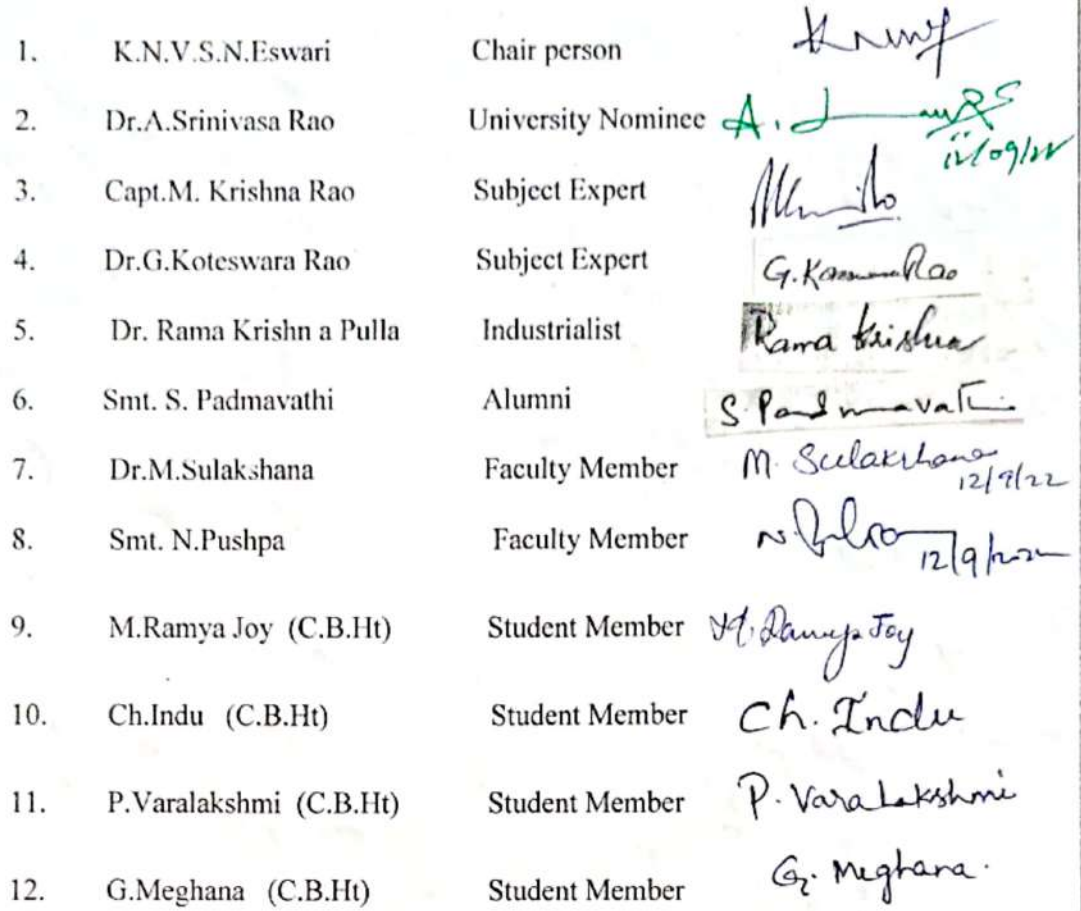 1. K.N.V.S.N.Eswari Chair person
2. Dr.A.Srinivasa Rao University Nominee A. 12/09/22
3. Capt.M. Krishna Rao Subject Expert
4. Dr.G.Koteswara Rao Subject Expert G. Rao
5. Dr. Rama Krishn a Pulla Industrialist Rama Krishna
6. Smt. S. Padmavathi Alumni S. Padmavathi
7. Dr.M.Sulakshana Faculty Member M. Sulakshana
12/9/22
8. Smt. N.Pushpa Faculty Member N.
12/9/2022
9. M.Ramya Joy (C.B.Ht) Student Member M. Ramya Joy
10. Ch.Indu (C.B.Ht) Student Member Ch. Indu
11. P.Varalakshmi (C.B.Ht) Student Member P. Varalakshmi
12. G.Meghana (C.B.Ht) Student Member G. Meghana.